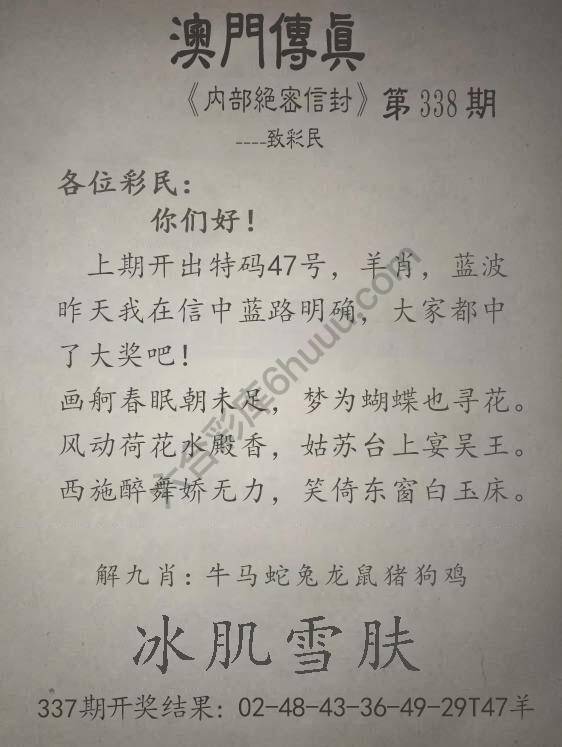 澳門傳眞
《内部絕密信封》第338期
----致彩民
各位彩民：
你们好！
上期开出特码47号，羊肖，蓝波
昨天我在信中蓝路明确，大家都中
了大奖吧！
画舸春眠朝未足，梦为蝴蝶也寻花。
风动荷花水殿香，姑苏台上宴吴王。
西施醉舞娇无力，笑倚东窗白玉床。
解九肖：牛马蛇兔龙鼠猪狗鸡
冰肌雪肤
337期开奖结果：02-48-43-36-49-29T47羊
六合彩库6huuu.com